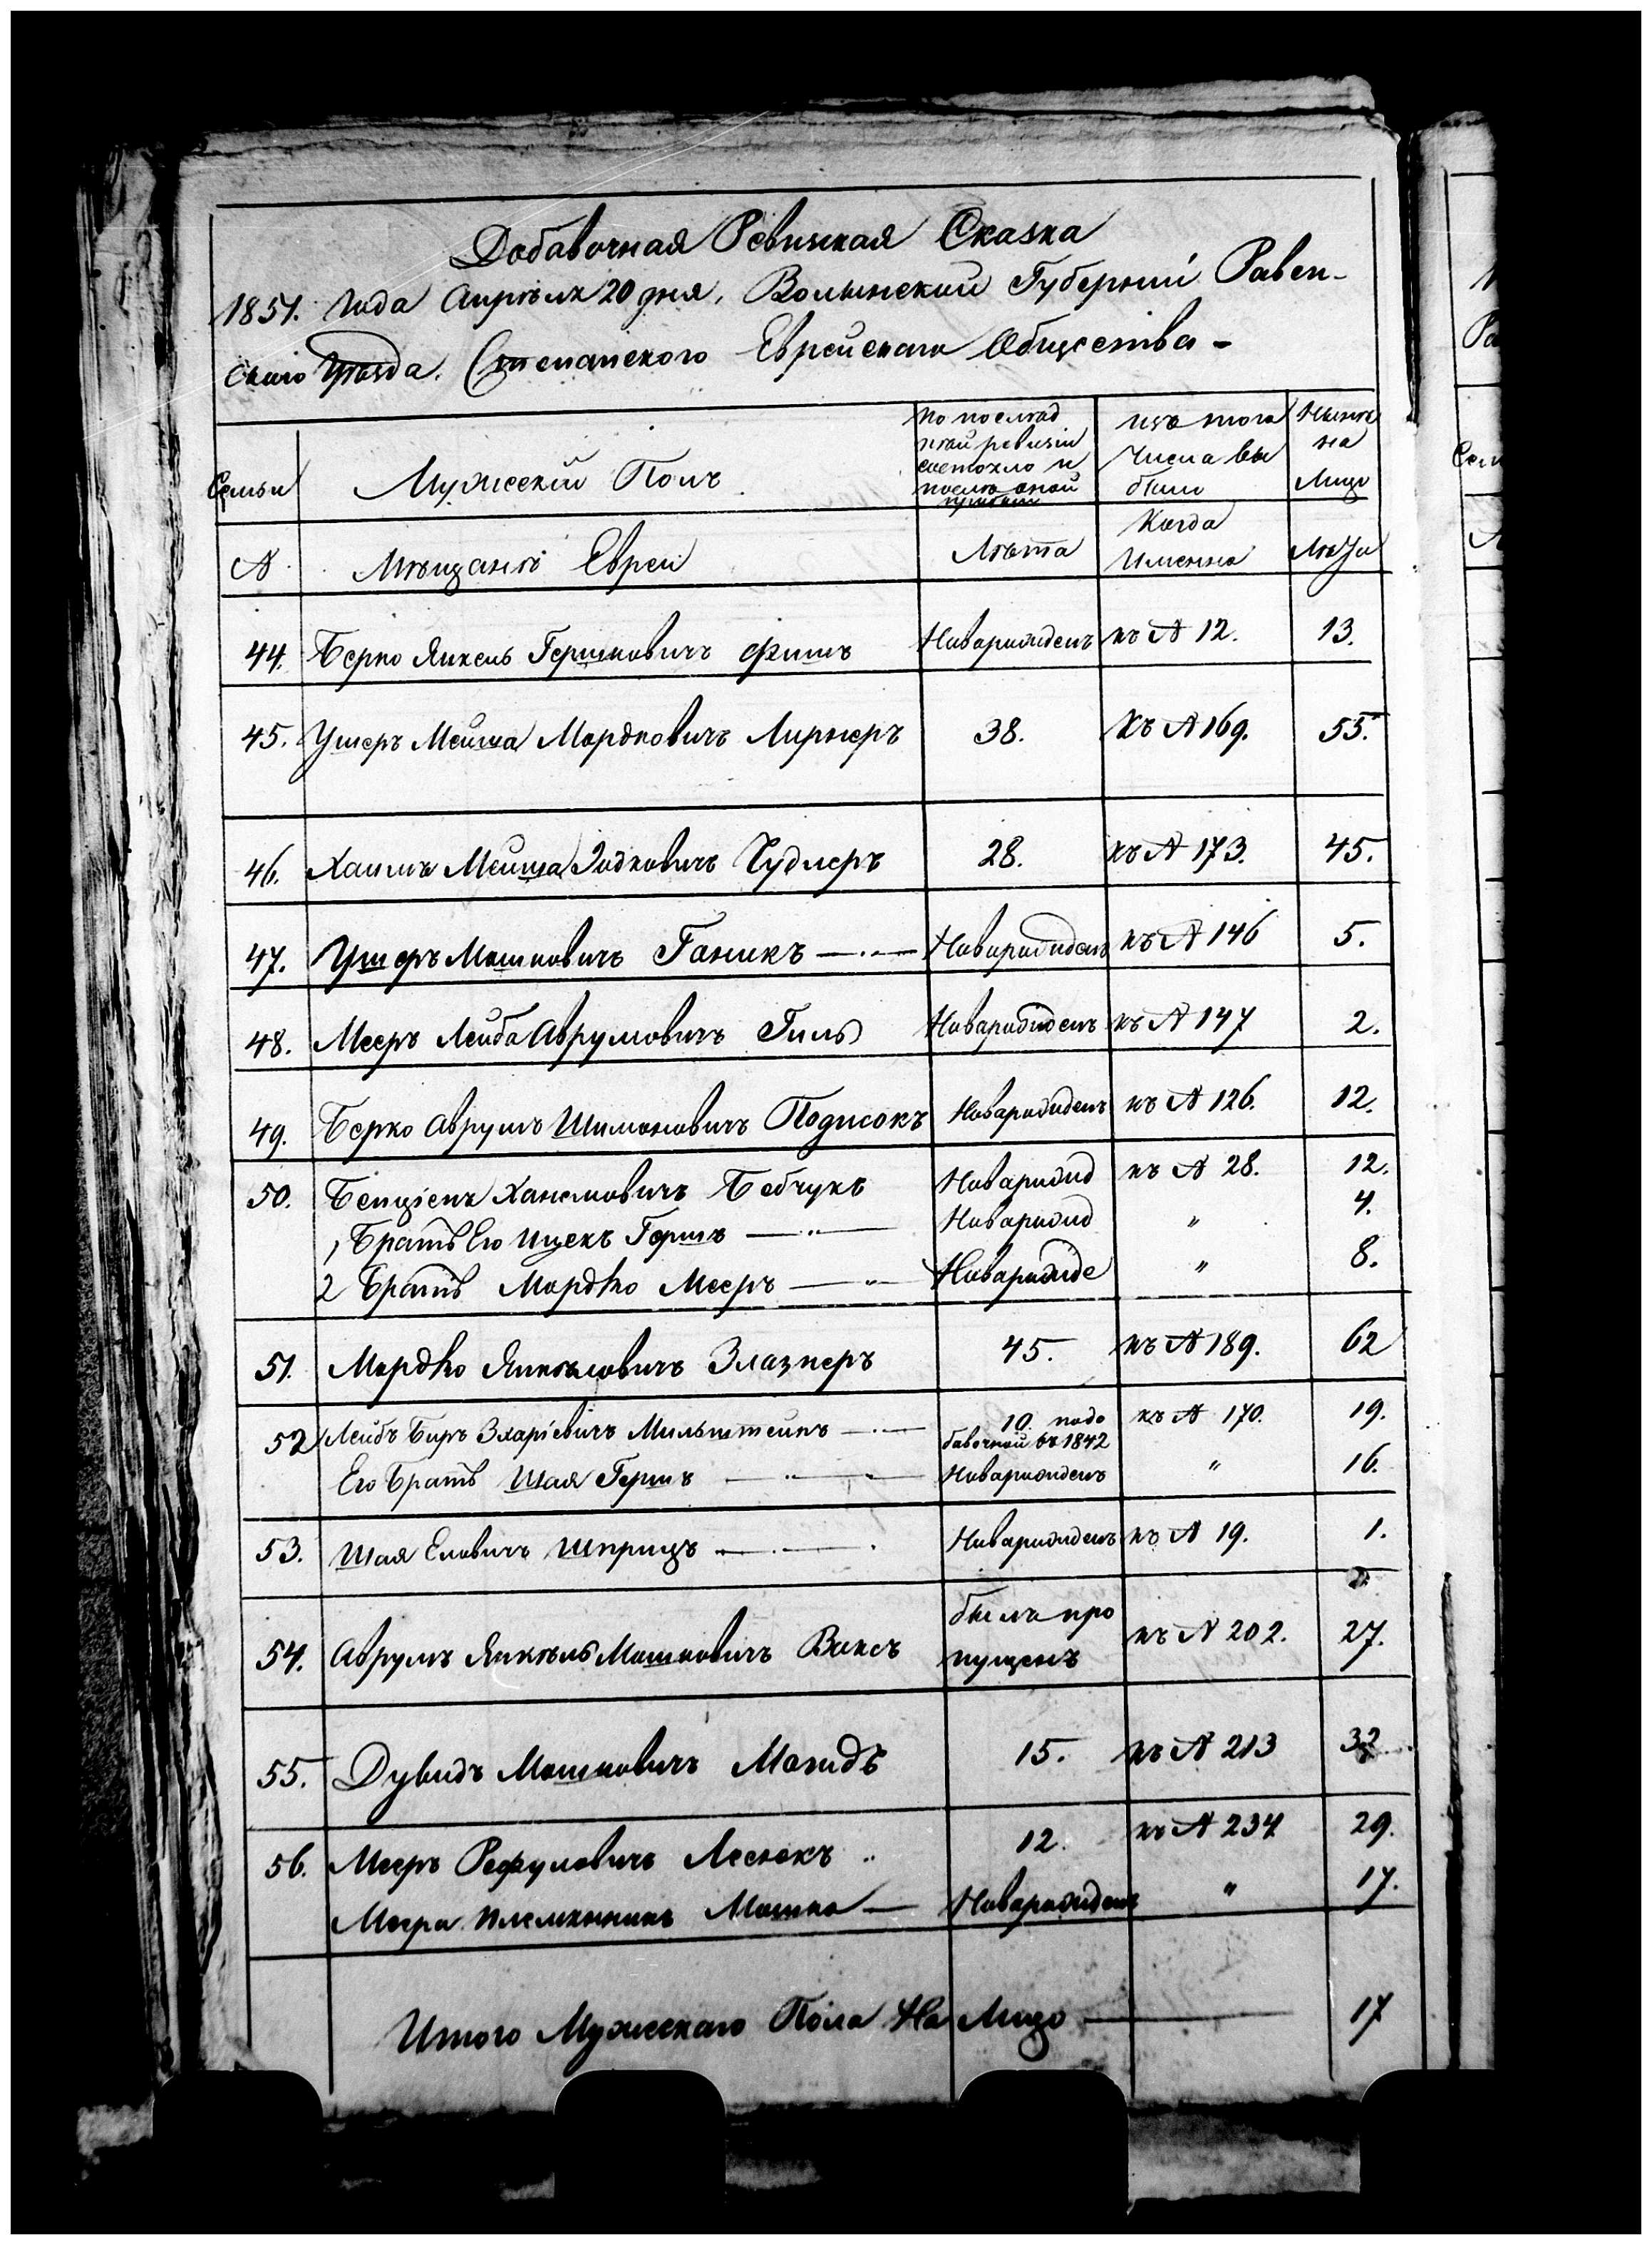 Добавочная Ревиская Сказка
1851. Года Апреля 20 дня, Волынской Губернии Равен-
скаго Уезда. Степанского Еврейскаго Общества -
Семьи
Мужеский Полъ
По послед
ней ревизии
состояло и
после оной
прибыло
изъ того
Числа вы
было
Ныне
на
Лицо
№
Мещане Евреи
Лета
Когда
Именно
Лета
44. Берко Янкель Гершковичъ Фишъ Новарожденъ къ № 12. 13.
45. Ушеръ Мейша Мордковичъ Лирнеръ 38. Къ № 169. 55.
46. Хаимъ Мейша Зодковичъ Чудлеръ 28. къ № 173. 45.
47. Ушеръ Мошковичъ Ганикъ — " — Новарожденъ къ № 146 5.
48. Мееръ Лейба Аврумовичъ Гиль Новарожденъ къ № 147 2.
49. Берко Аврумъ Шимоновичъ Подисокъ Новарожденъ къ № 126. 12.
50. Бенциенъ Ханимовичъ Бебчукъ Новарожд къ № 28. 12.
1, Братъ Его Ицекъ Гершъ — " — Новарожд " 4.
2 Братъ Мордко Мееръ — " Новарожде " 8.
51. Мордко Янкеловичъ Глазнеръ 45. къ № 189. 62
52 Лейбъ Биръ Зхариевичъ Мильштейнъ — " — 10. подо къ № 170. 19.
бавочной въ 1842
Его Братъ Шая Гершъ — " — Новарожденъ " 16.
53. Шая Елевичъ Шприцъ — . — Новарожденъ къ № 19. 1.
54. Аврумъ Янкель Мошковичъ Ваксъ былъ про къ № 202. 27.
пущенъ
55. Дувидъ Мошковичъ Магидъ 15. къ № 213 32
56. Мееръ Рефуловичъ Лесюкъ " 12. къ № 234 29.
Меера племянникъ Мошко — Новарожденъ " 17.
Итого Мужескаго Пола На Лицо — 17